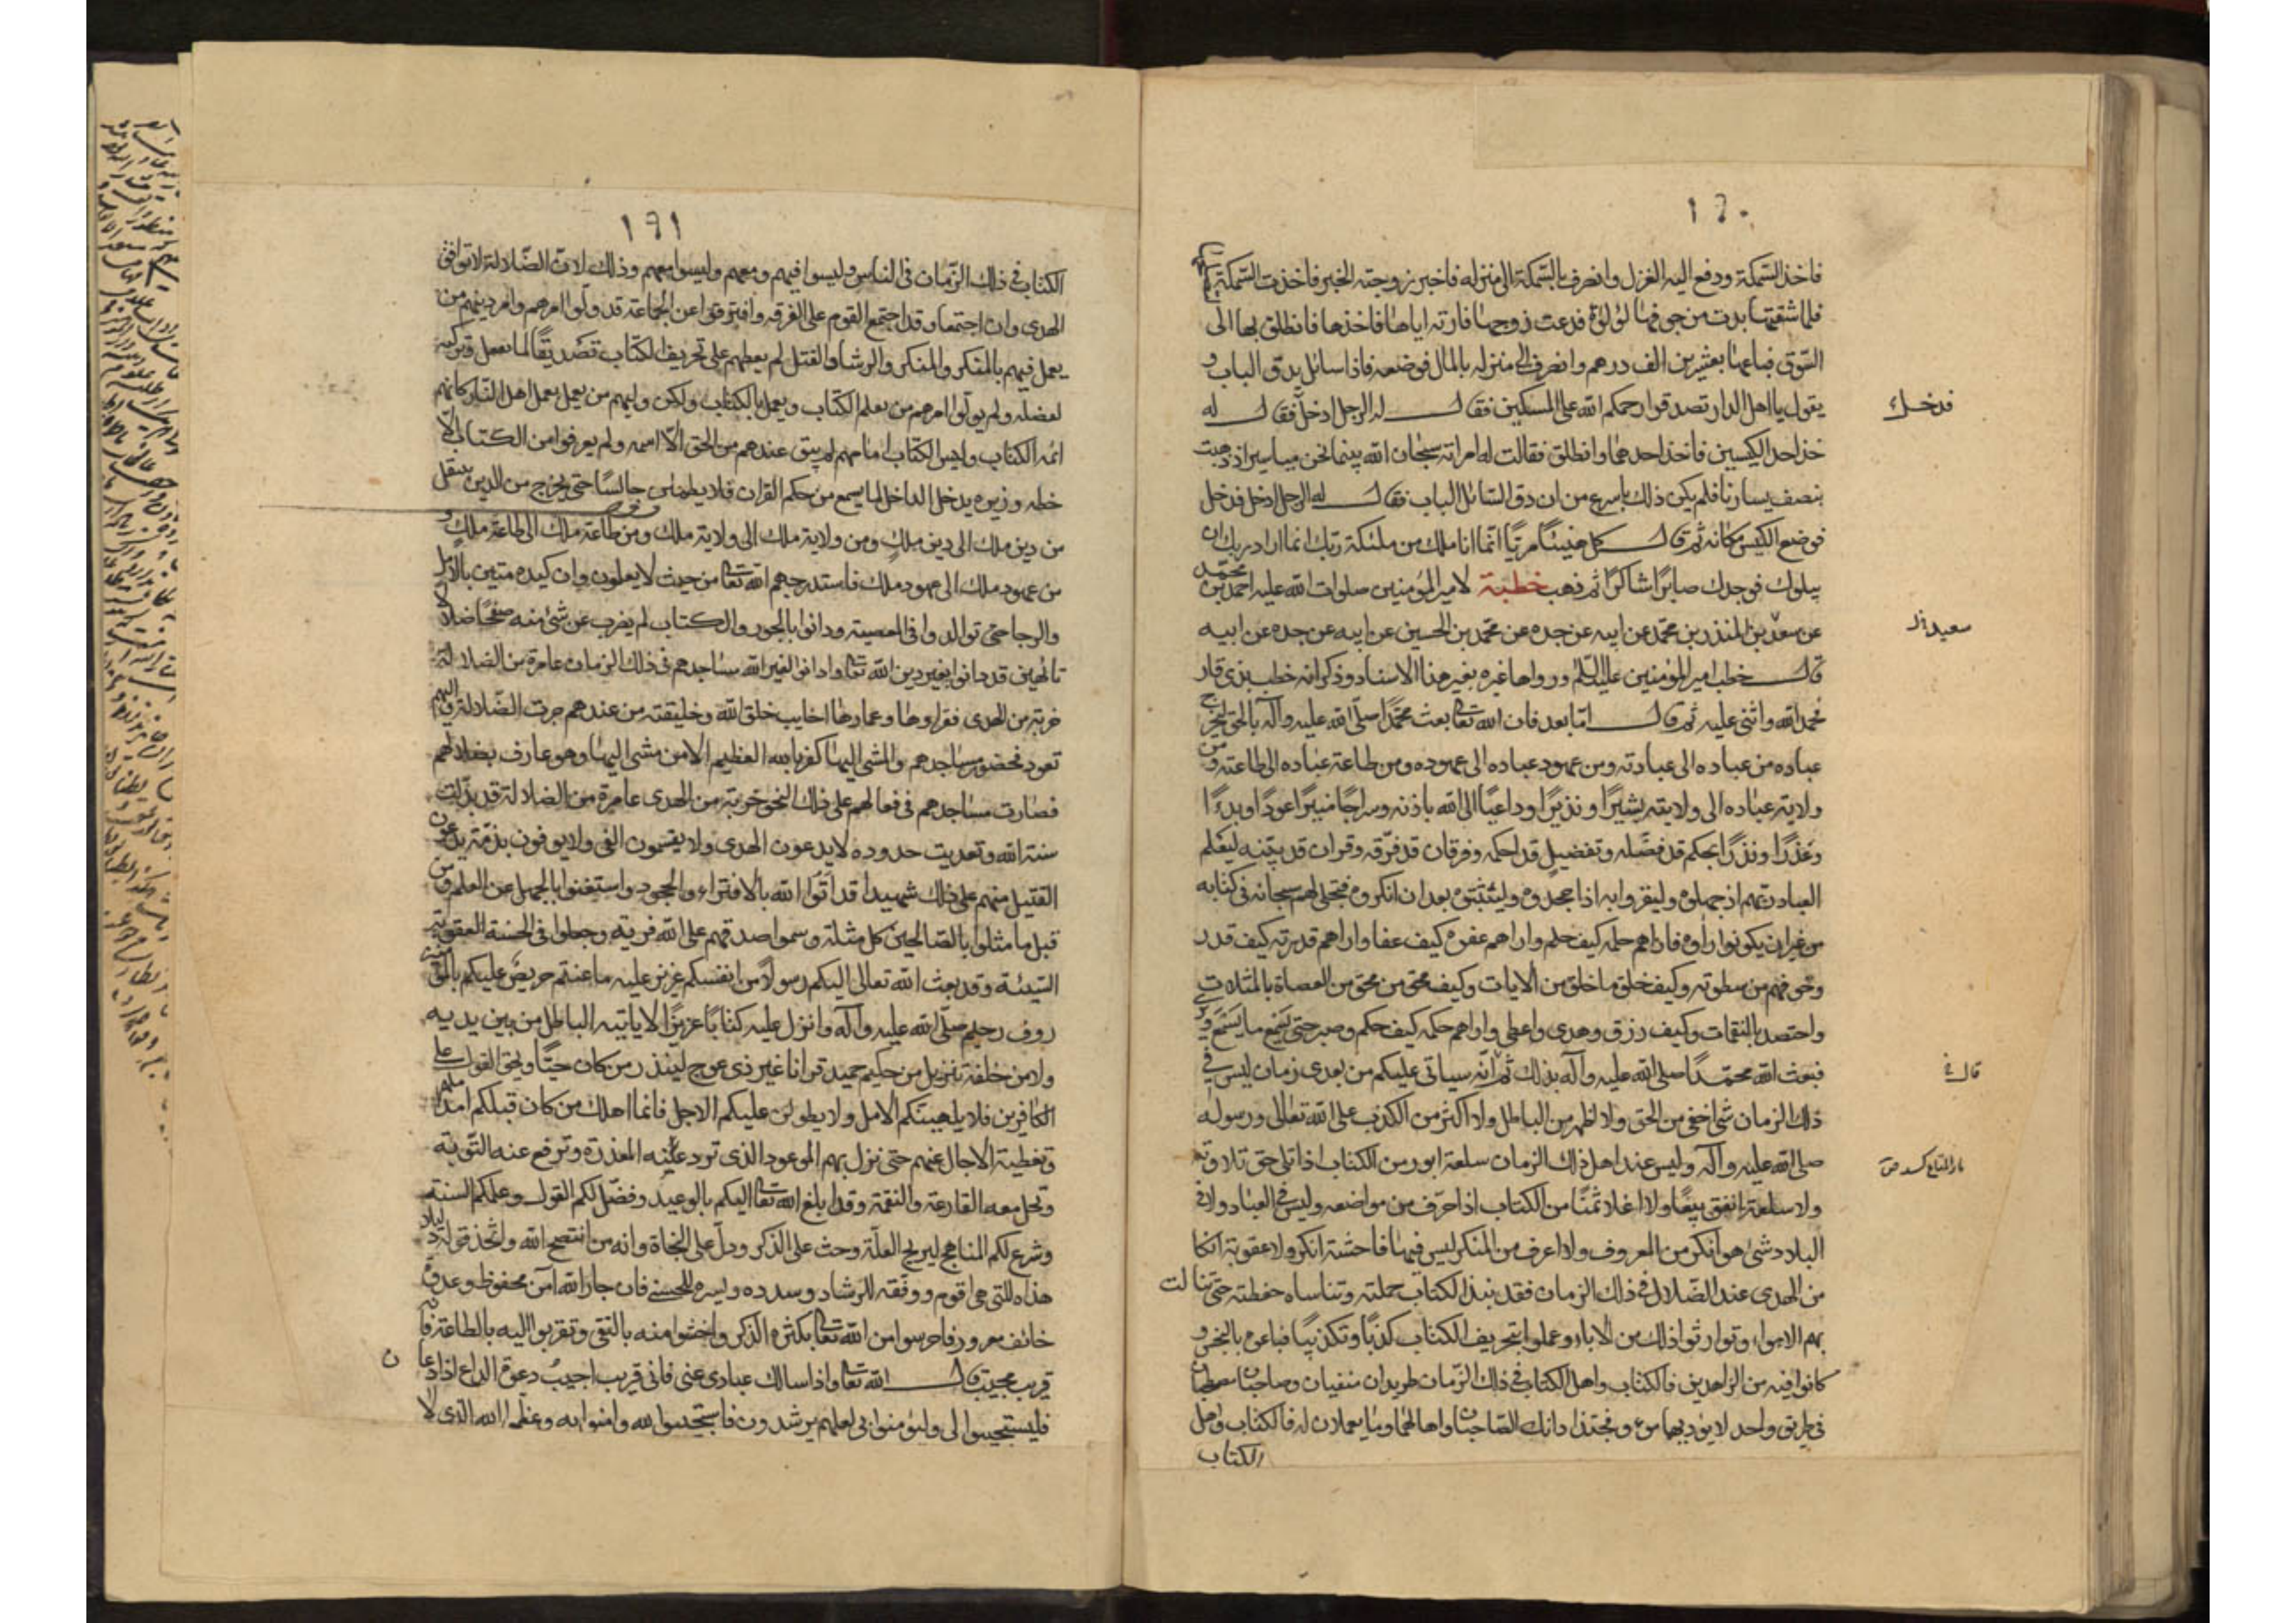 ١٩٠
فاخذ السّمكة ودفع اليه الغزل وانصرف بالسّمكة الى منزله فاخبر زوجته الخبر فاخذت السّمكة
فلما شقتها بدت من جوفها لؤلؤة فدعت زوجها فارته اياها فاخذها فانطلق بها الى
السّوق فباعها بعشرين الف درهم وانصرف الى منزله بالمال فوضعه فاذا سائل يدق الباب و
يقول يا اهل الدار تصدقوا رحمكم الله على المسكين فقال له الرجل ادخل فقال له
فدخل
خذ احد الكيسين فاخذ احدهما وانطلق فقالت له امراته سبحان الله بينما نحن مياسير اذ ذهبت
بنصف يسارنا فلم يكن ذلك باسرع من ان دق السّائل الباب فقال له الرجل ادخل فدخل
فوضع الكيس مكانه ثم قال كل هنيئًا مريًا انّما انا ملك من ملئكة ربّك انما اراد ربك ان
يبلوك فوجدك صابرًا شاكرًا ثم ذهب خطبة لامير المؤمنين صلوات الله عليه احمد بن محمّد
عن سعد بن المنذر بن محمّد عن ابيه عن جده عن محمّد بن الحسين عن ابيه عن جده عن ابيه
سعيد
قال خطب امير المؤمنين عليه السّلم ورواها غيره بغير هذا الاسناد وذكر انه خطب بذى قار
فحمد الله واثنى عليه ثم قال امّا بعد فان الله تعا بعث محمّدًا صلّى الله عليه وآله بالحق ليخرج
عباده من عباده الى عبادته ومن عهود عباده الى عهوده ومن طاعة عباده الى طاعته ومن
ولاية عباده الى ولايته بشيرًا ونذيرًا وداعيًا الى الله باذنه وسراجًا منيرًا عودًا وبدءًا
وعذرًا ونذرًا بحكم قد فصّله وتفصيل قد احكمه وفرقان قد فرّقه وقران قد بيّنه ليعلم
العباد ربّهم اذ جهلوه وليقروا به اذ جحدوه وليثبتوه بعد ان انكروه فتجلى لهم سبحانه فى كتابه
من غير ان يكونوا راوه فاراهم حلمه كيف حلم واراهم عفوه كيف عفا واراهم قدرته كيف قدر
وخوفهم من سطوته وكيف خلق ما خلق من الايات وكيف محق من محق من العصاة بالمثلات
واحتصد بالنقمات وكيف رزق وهدى واعطى واراهم حكمه كيف حكم وصبر حتى يسمع ما يسمع ويرى
فبعث الله محمّدًا صلى الله عليه وآله بذلك ثم انّه سياتى عليكم من بعدى زمان ليس فى
ذلك الزمان شئ اخفى من الحق ولا اظهر من الباطل ولا اكثر من الكذب على الله تعالى ورسوله
صلى الله عليه وآله وليس عند اهل ذلك الزمان سلعة ابور من الكتاب اذا تلى حق تلاوته
ولا سلعة انفق بيعًا ولا اغلا ثمنًا من الكتاب اذا حرّف من مواضعه وليس فى العباد ولا فى
البلاد شئ هو انكر من المعروف ولا اعرف من المنكر ليس فيها فاحشة انكر ولا عقوبة انكا
من الهدى عند الضّلال فى ذلك الزمان فقد نبذ الكتاب حملته وتناساه حفظته حتى تمالت
بهم الاهواء وتوارثوا ذلك من الاباء وعملوا بتحريف الكتاب كذبًا وتكذيبًا فباعوه بالبخس و
كانوا فيه من الزاهدين فالكتاب واهل الكتاب فى ذلك الزّمان طريدان منفيان وصاحبان مصطحبان
فى طريق واحد لا يؤويهما مؤو فحبّذا ذانك الصّاحبان واها لهما ولما يعملان له فالكتاب واهل
الكتاب
١٩١
الكتاب فى ذلك الزّمان فى الناس وليسوا فيهم ومعهم وليسوا معهم وذلك لان الضّلالة لا توافق
الهدى وان اجتمعا وقد اجتمع القوم على الفرقه وافترقوا عن الجماعة قد ولّوا امرهم وامر دينهم من
يعمل فيهم بالمكر والمنكر والرشا والقتل لم يعظهم على تحريف الكتاب تصديقًا لما يفعل وتزكية
لفضله ولم يولّوا امرهم من يعلم الكتاب ويعمل بالكتاب ولكن وليهم من يعمل بعمل اهل النّار كانهم
ائمة الكتاب وليس الكتاب امامهم لم يبق عندهم من الحق الّا اسمه ولم يعرفوا من الكتاب الّا
خطه وزبره يدخل الداخل لما يسمع من حكم القران فلا يطمئن جالسًا حتى يخرج من الدين ينتقل
من دين ملك الى دين ملك ومن ولاية ملك الى ولاية ملك ومن طاعة ملك الى طاعة ملك و
من عهود ملك الى عهود ملك فاستدرجهم الله تعا من حيث لا يعلمون وان كيده متين بالامل
والرجا حتى توالدوا فى المعصية ودانوا بالجور والكتاب لم يضرب عن شئ منه صفحًا ضلالا
تائهين قد دانوا بغير دين الله تعا وادانوا لغير الله مساجدهم فى ذلك الزمان عامرة من الضلالة
خربة من الهدى فقراوها وعمارها اخايب خلق الله وخليقته من عندهم جرت الضّلالة واليهم
تعود فحضور مساجدهم والمشى اليها كفر بالله العظيم الا من مشى اليها وهو عارف بضلالهم
فصارت مساجدهم فى فعالهم على ذلك النحو خربة من الهدى عامرة من الضلالة قد بدّلت
سنة الله وتعديت حدوده لا يدعون الهدى ولا يقسمون الفئ ولا يوفون بذمّة يدعون
القتيل منهم على ذلك شهيدا قد اتوا الله بالافتراء والجحود واستغنوا بالجهل عن العلم ومن
قبل ما مثلوا بالصّالحين كل مثلة وسموا صدقهم على الله فرية وجعلوا فى الحسنة العقوبة
السّيئة وقد بعث الله تعالى اليكم رسولًا من انفسكم عزيز عليه ما عنتم حريص عليكم بالمؤمنين
روف رحيم صلّى الله عليه وآله وانزل عليه كتابًا عزيزًا لا ياتيه الباطل من بين يديه
ولا من خلفه تنزيل من حكيم حميد قرانا غير ذى عوج لينذر من كان حيًّا ويحق القول على
الكافرين فلا يلهينكم الامل ولا يطولن عليكم الاجل فانما اهلك من كان قبلكم امد املهم
وتغطية الاجال عنهم حتى نزل بهم الموعود الذى ترد عنه المعذرة وترفع عنه التّوبة
وتحل معه القارعة والنقمة وقد ابلغ الله تعا اليكم بالوعيد وفضّل لكم القول وعلمكم السنة
وشرع لكم المناهج ليزيح العلّة وحث على الذكر ودلّ على النجاة وانه من انتصح الله واتّخذ قوله دليلا
هداه للتى هى اقوم ووفقه للرشاد وسدده ويسره للحسنى فان جار الله آمن محفوظ وعدوه
خائف مغرور فاحرسوا من الله تعا بكثرة الذكر واخشوا منه بالتقى وتقربوا اليه بالطاعة فانه
قريب مجيب قال الله تعا واذا سالك عبادى عنى فانى قريب اجيبُ دعوة الداع اذا دعان
فليستجيبوا لى وليؤمنوا بى لعلهم يرشدون فاستجيبوا لله وامنوا به وعظموا الله الذى لا